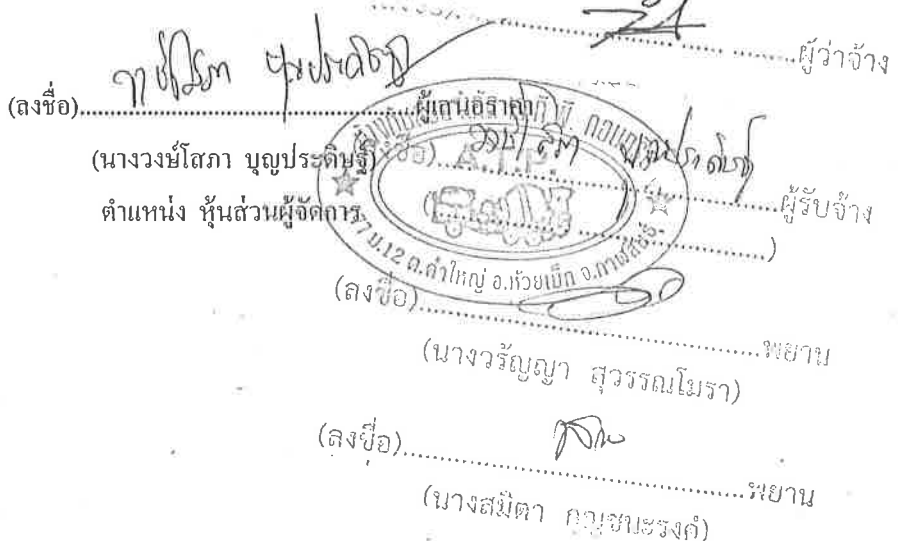 ผู้ว่าจ้าง
(ลงชื่อ) วงษ์โสภา บุญประดิษฐ์ ผู้เสนอราคา
(นางวงษ์โสภา บุญประดิษฐ์)
ตำแหน่ง หุ้นส่วนผู้จัดการ
ผู้รับจ้าง
77 ม.12 ต.คำใหญ่ อ.ห้วยเม็ก จ.กาฬสินธุ์
(ลงชื่อ) พยาน
(นางวรัญญา สุวรรณโมรา)
(ลงชื่อ) พยาน
(นางสมิตา กาญชนะรงค์)